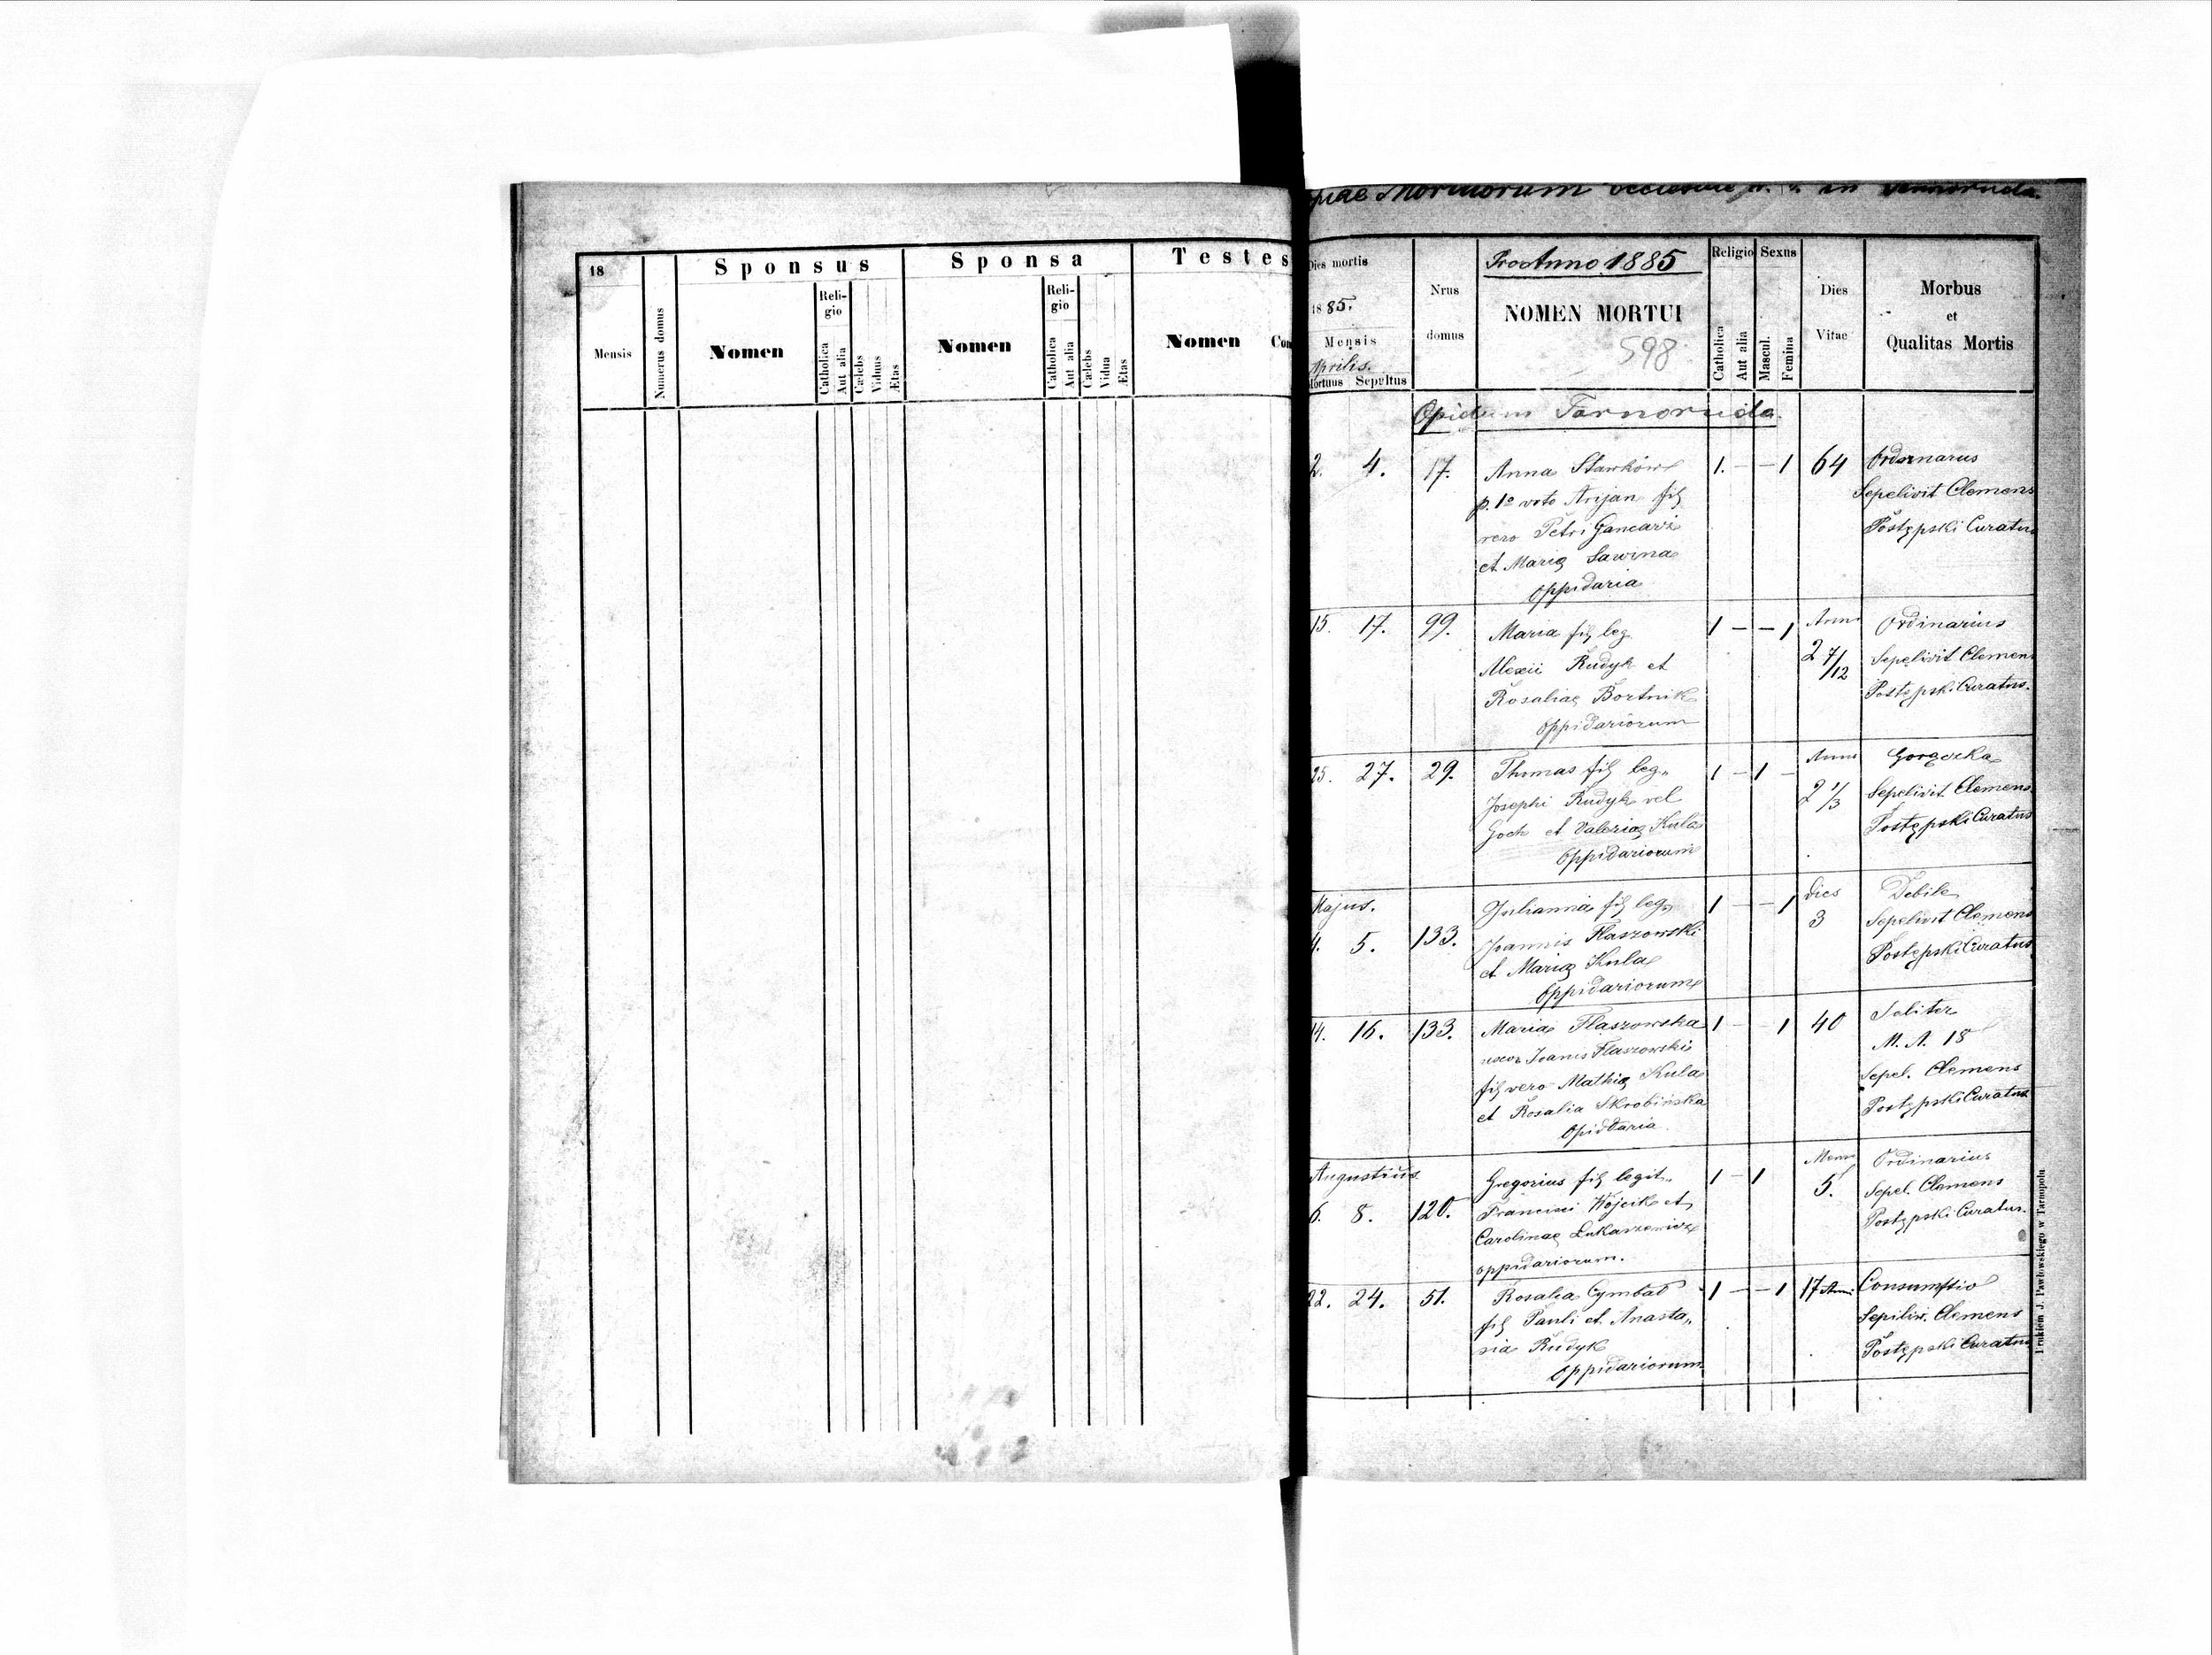 18
Sponsus
Sponsa
Testes
Mensis
Numerus domus
Nomen
Religio
Catholica
Aut alia
Cælebs
Viduus
Ætas
Nomen
Religio
Catholica
Aut alia
Cælebs
Vidua
Ætas
Nomen
Mortuorum in
Dies mortis
1885.
Mensis
Aprilis.
Mortuus Sepultus
Nrus
domus
Pro Anno 1885
NOMEN MORTUI
598
Religio
Catholica
Aut alia
Sexus
Mascul.
Femina
Dies
Vitae
Morbus
et
Qualitas Mortis
Opidum Tarnoruda.
2. 4. 17. Anna Stawków 1. — — 1 64 Ordernarus
p. 1o voto Arijan fil Sepelivit Clemens
vero Petri Gancarz Postępski Curatus
et Mariæ Sawina
Oppidaria
15. 17. 99. Maria fil leg 1 — — 1 Anni Ordinarius
Alexii Rudyk et 2 7/12 Sepelivit Clemens
Rosaliae Bortnik Postępski Curatus.
Oppidariorum
25. 27. 29. Thomas fil leg„ 1 — 1 — Anni Gorączka
Josephi Rudyk vel 2 1/3 Sepelivit Clemens
Goch et Valeriæ Kula Postępski Curatus
Oppidariorum
Majus. Julianna fil leg„ 1 — — 1 Dies Debile
4. 5. 133. Joannis Flaszowski 3 Sepelivit Clemens
et Mariæ Kula Postępski Curatus
Oppidariorum
14. 16. 133. Maria Flaszowska 1 — 1 40 Soliter
uxor Joanis Flaszowski M. A. 18
fil vero Mathiæ Kula Sepel. Clemens
et Rosalia Skrobińska Postępski Curatus
Opiddaria.
Augustius Gregorius fil legit„ 1 — 1 Mens Ordinarius
6. 8. 120. Francisci Wojcik et 5. Sepel. Clemens
Carolinae Lukaszewicz Postępski Curatus.
oppidariorum.
22. 24. 51. Rosalia Cymbal 1 — — 1 17 Anni Consumptio
fil Pauli et Anasta„ Sepeliv. Clemens
sia Rudyk Postępski Curatus
Oppidariorum.
Drukiem J. Pawłowskiego w Tarnopolu